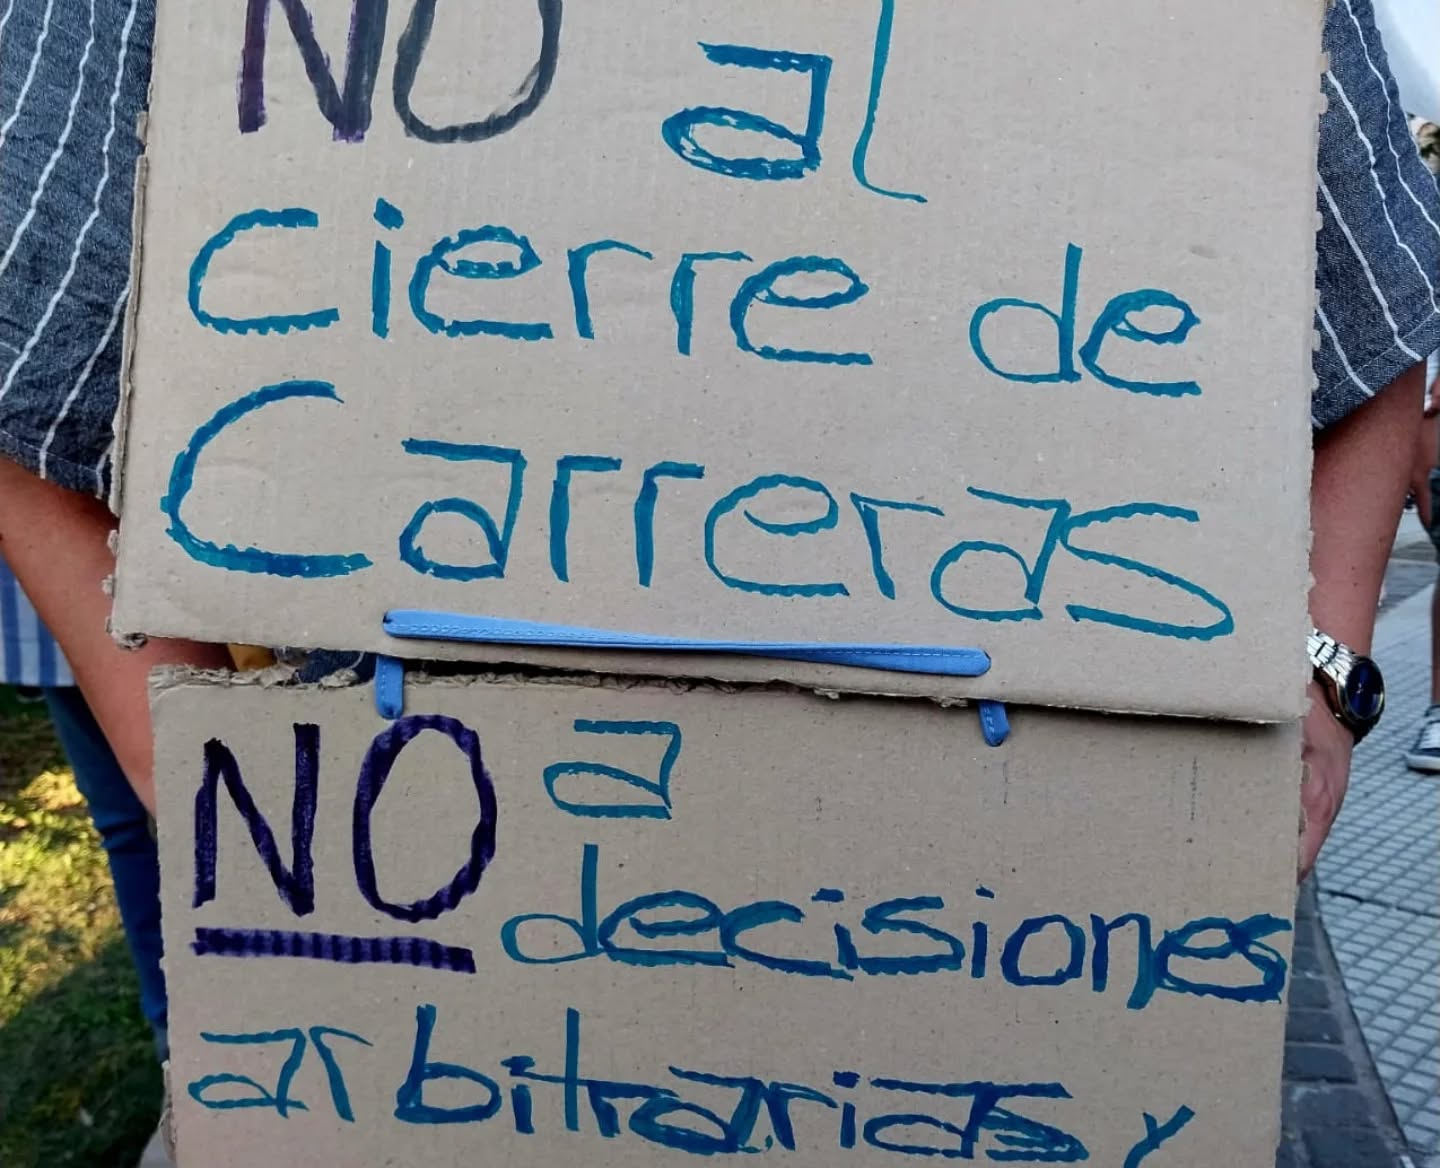 NO al
cierre de
Carreras
NO a
decisiones
arbitrarias y